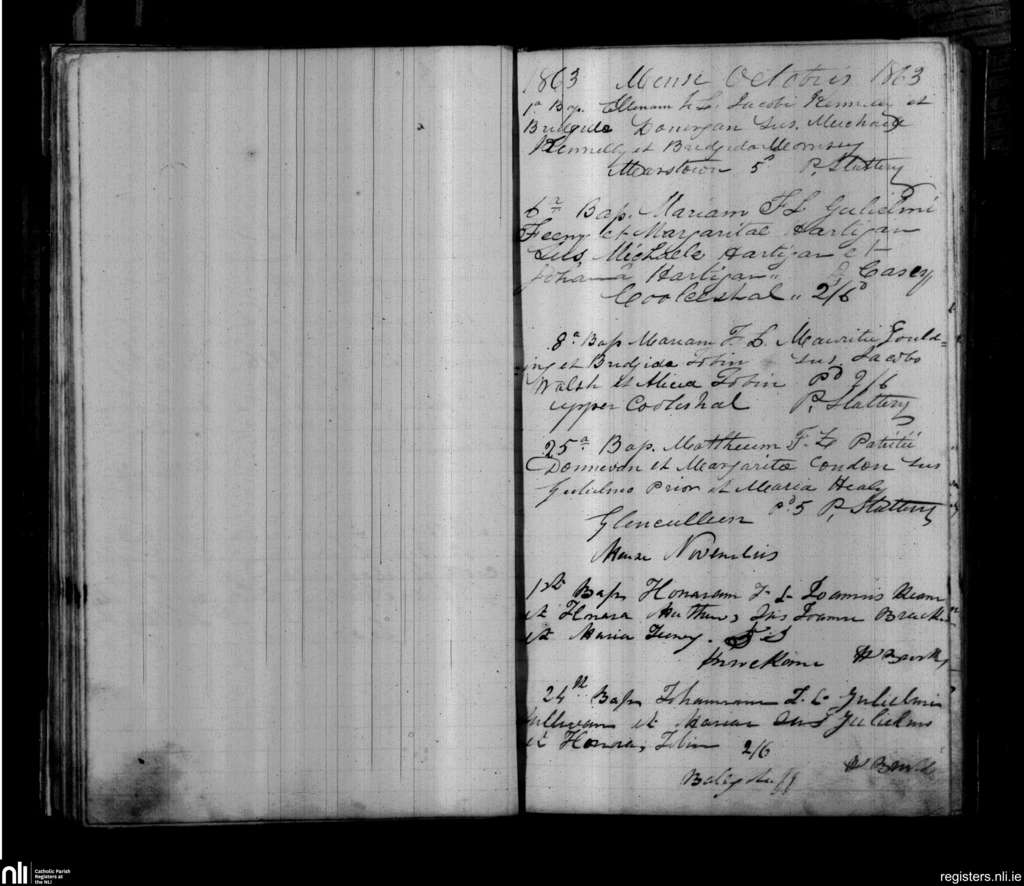 1863 Mense Octobris 1863
1ª Bap. Ellenam F. L. Jacobi Kennelly et
Bridgida Donergan Sus. Michaele
Kennelly et Bridgida Morrisey
Mearstown 5s P. Slattery
6ª Bap. Mariam F L Gulielmi
Feeny et Margaritae Hartigan
Sus Michaele Hartigan et
Johanna Hartigan " Casey
Coolishal " 2/6d
8ª Bap Mariam F L Mauritii Gould=
ing et Bridgida Tobin Sus Jacobo
Walsh et Alicia Tobin Pd 2/6
upper Coolishal P. Slattery
25ª Bap. Mattheum F. L Patritii
Donnevan et Margarita Condon Sus
Gulielmo Prior et Maria Healy
Pd 5 P. Slattery
Glenculleen
Mense Novembris
1st Bap Honaram F L Joannis
et Honora Sus Joanne
et Maria Feeny.
24 Bap Johannam F. L Gulielmi
Sullivan et Mariae Sus Gulielmo
et Honora Tobin 2/6
nli
Catholic Parish
Registers at
the NLI
registers.nli.ie